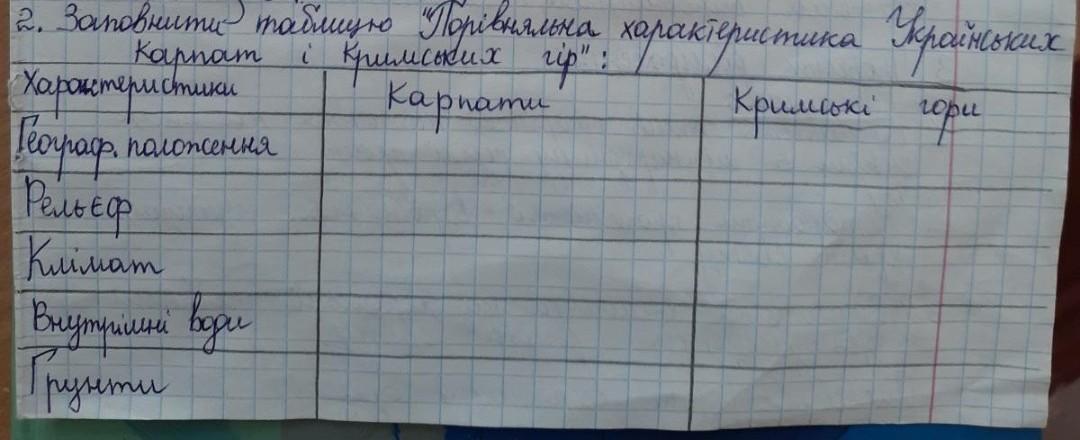 2. Заповнити таблицю "Порівняльна характеристика Українських
Карпат і Кримських гір":
Характеристики Карпати Кримські гори
Географ. положення
Рельєф
Клімат
Внутрішні води
Ґрунти